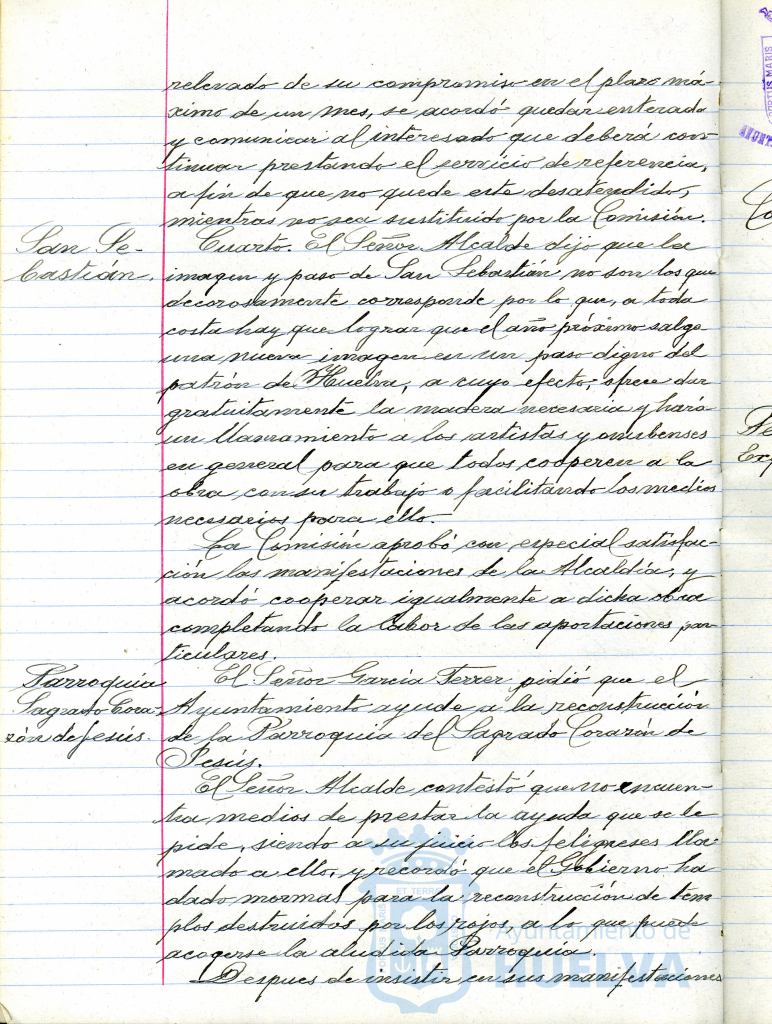 relevado de su compromiso en el plazo má-
ximo de un mes, se acordó quedar enterada
y comunicar al interesado que deberá con-
tinuar prestando el servicio de referencia,
a fin de que no quede este desatendido,
mientras no sea sustituido por la Comisión.
San Se-
bastián.
Cuarto. El Señor Alcalde dijo que la
imagen y paso de San Sebastián no son los que
decorosamente corresponde por lo que, a toda
costa hay que lograr que el año próximo salga
una nueva imagen en un paso digno del
patrón de Huelva, a cuyo efecto, ofrece dar
gratuitamente la madera necesaria y hará
un llamamiento a los artistas y onubenses
en general para que todos cooperen a la
obra con su trabajo o facilitando los medios
necesarios para ello.
La Comisión aprobó con especial satisfac-
ción las manifestaciones de la Alcaldía, y
acordó cooperar igualmente a dicha obra
completando la labor de las aportaciones par-
ticulares.
Parroquia
Sagrado Cora-
zón de Jesús.
El Señor García Ferrer pidió que el
Ayuntamiento ayude a la reconstrucción
de la Parroquia del Sagrado Corazón de
Jesús.
El Señor Alcalde contestó que no encuen-
tra medios de prestar la ayuda que se le
pide, siendo a su juicio los feligreses lla-
mado a ello, y recordó que el Gobierno ha
dado normas para la reconstrucción de tem-
plos destruidos por los rojos, a lo que puede
acogerse la aludida Parroquia.
Despues de insistir en sus manifestaciones
Ayuntamiento de
HUELVA